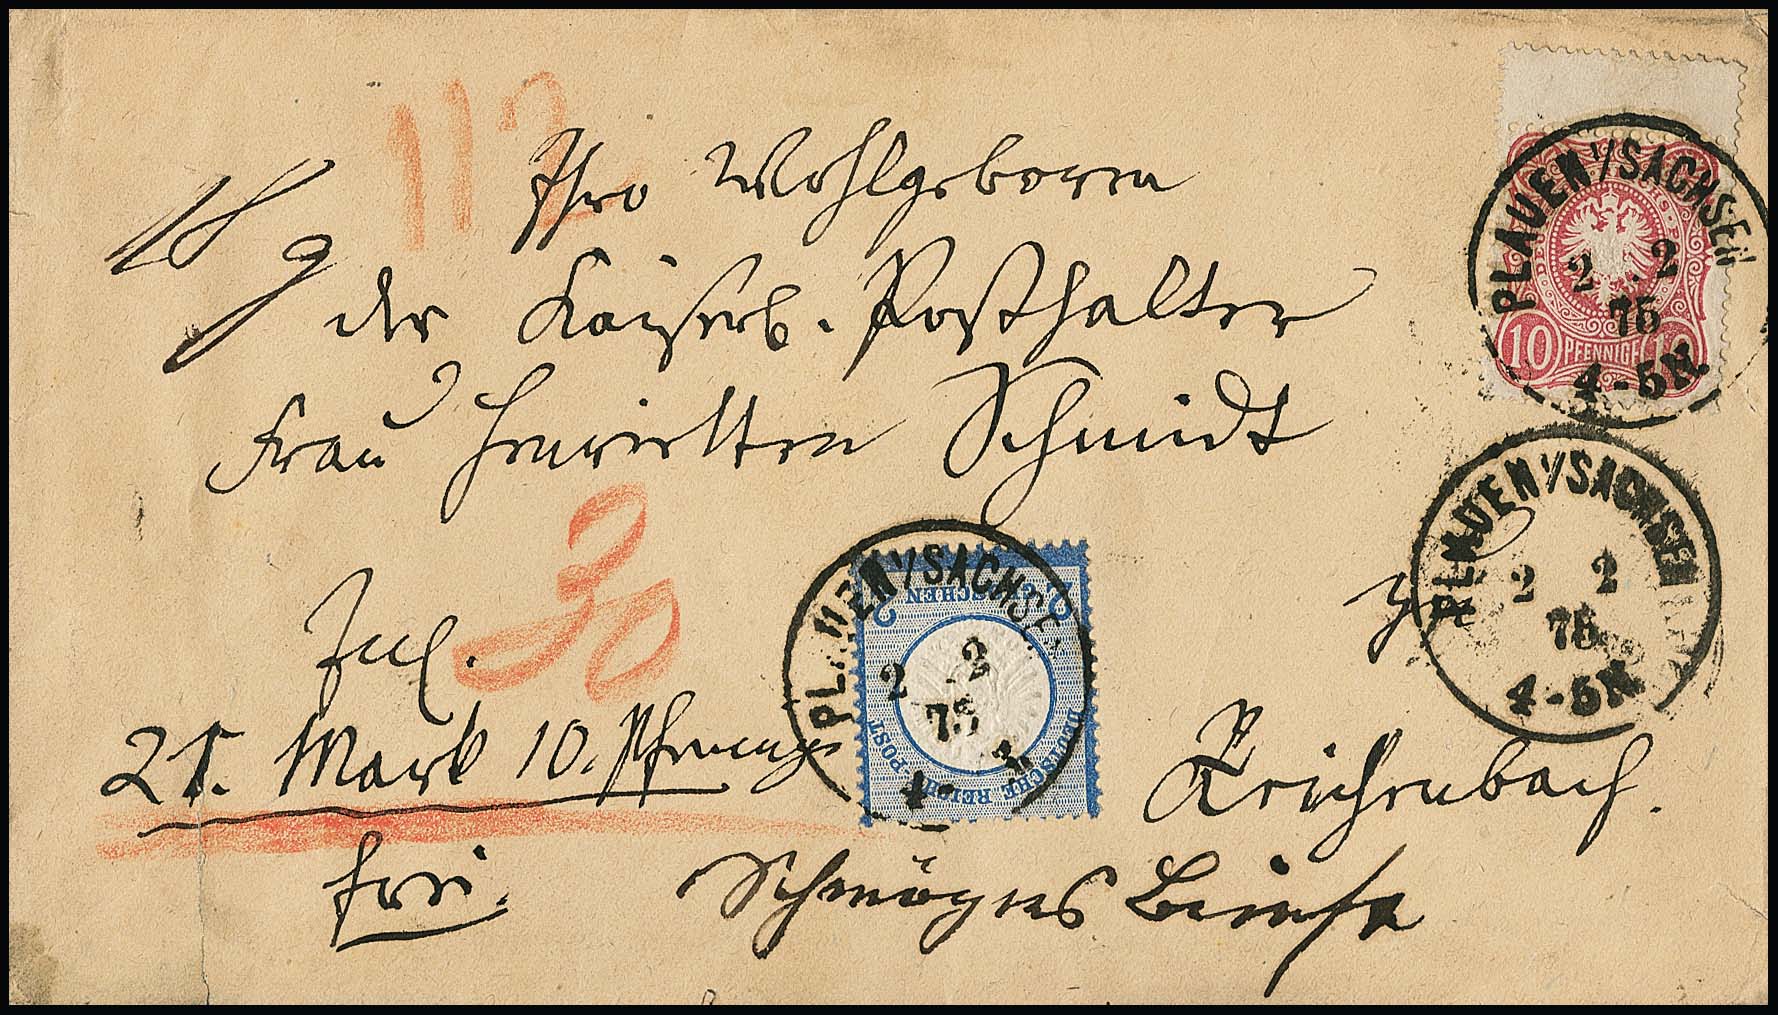 112
Ihro Wohlgeboren
der Kaiserl. Posthalter
Frau Henrietten Schmidt
30
Inl.
21. Mark 10. Pfennige
frei.
Reichenbach.
PLAUEN I/SACHSEN
2 2
75
4-5N.
10 PFENNIG 10
PLAUEN I/SACHSEN
2 2
75
4-5N.
PLAUEN I/SACHSEN
2 2
75
DEUTSCHE REICHS-POST
2 GROSCHEN 2